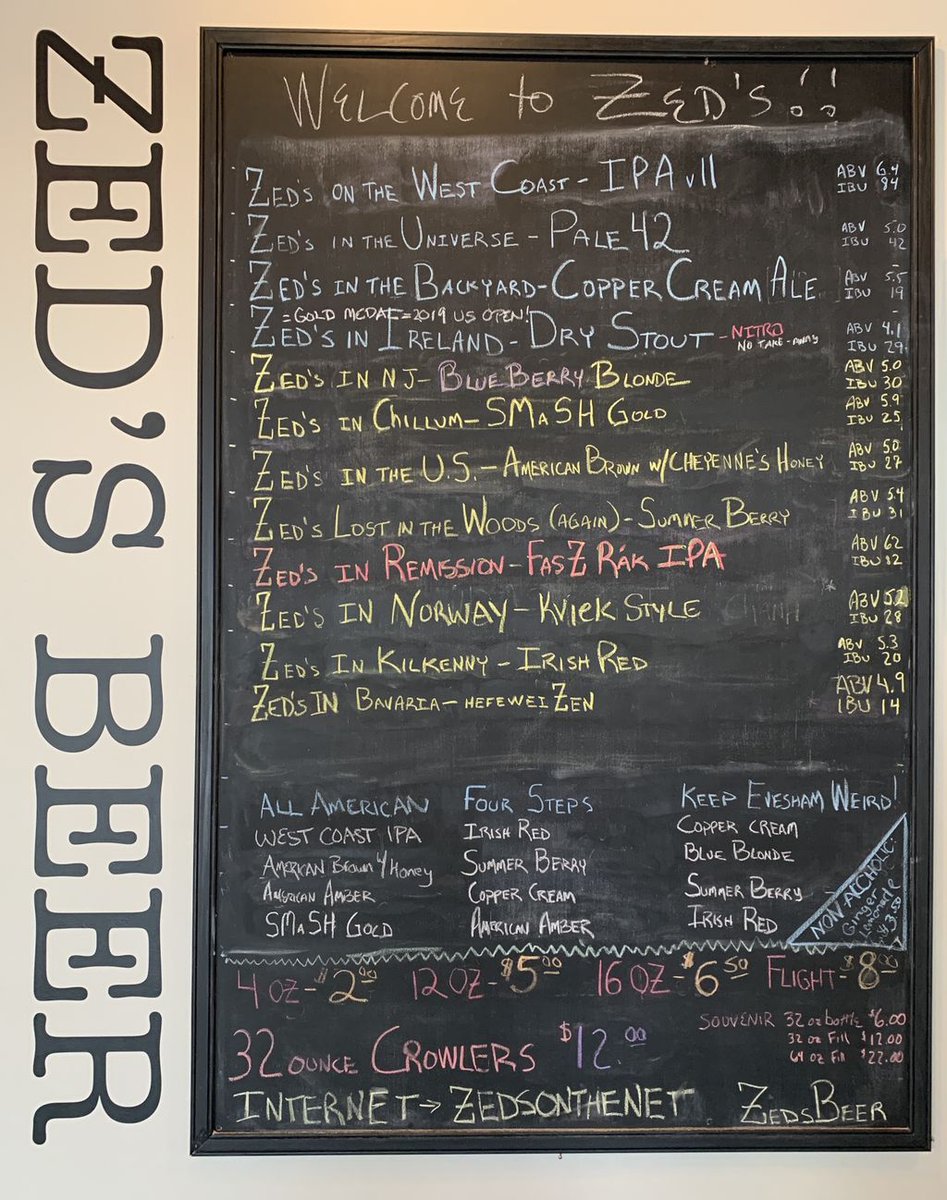 ZED'S BEER
WELCOME to ZED'S!!
ZED'S ON THE WEST COAST - IPA v11 ABV 6.4 IBU 84
ZED'S IN THE UNIVERSE - PALE 42 ABV 5.0 IBU 42
ZED'S IN THE BACKYARD - COPPER CREAM ALE ABV 5.5 IBU 19
= GOLD MEDAL = 2019 US OPEN!
ZED'S IN IRELAND - DRY STOUT - NITRO NO TAKE-AWAY ABV 4.1 IBU 29
ZED'S IN NJ - BLUEBERRY BLONDE ABV 5.0 IBU 30
ZED'S IN CHILLUM - SMaSH GOLD ABV 5.9 IBU 25
ZED'S IN THE U.S. - AMERICAN BROWN W/CHEYENNE'S HONEY ABV 5.0 IBU 27
ZED'S LOST IN THE WOODS (AGAIN) - SUMMER BERRY ABV 5.4 IBU 31
ZED'S IN REMISSION - FASZ RÁK IPA ABV 62 IBU 12
ZED'S IN NORWAY - KVIEK STYLE ABV 5.2 IBU 28
ZED'S IN KILKENNY - IRISH RED ABV 5.3 IBU 20
ZED'S IN BAVARIA - HEFEWEIZEN ABV 4.9 IBU 14
ALL AMERICAN
WEST COAST IPA
AMERICAN BROWN W/ HONEY
AMERICAN AMBER
SMaSH GOLD
FOUR STEPS
IRISH RED
SUMMER BERRY
COPPER CREAM
AMERICAN AMBER
KEEP EVESHAM WEIRD!
COPPER CREAM
BLUE BLONDE
SUMMER BERRY
IRISH RED
NON-ALCOHOLIC
Ginger
Lemonade
3.50
4 OZ - $2.00 12 OZ - $5.00 16 OZ - $6.50 FLIGHT - $8.00
SOUVENIR 32 oz bottle $6.00
32 oz Fill $12.00
64 oz Fill $22.00
32 OUNCE CROWLERS $12.00
INTERNET → ZEDSONTHENET ZEDSBEER